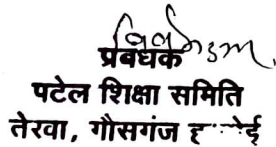 प्रबंधक
पटेल शिक्षा समिति
तेरवा, गौसगंज